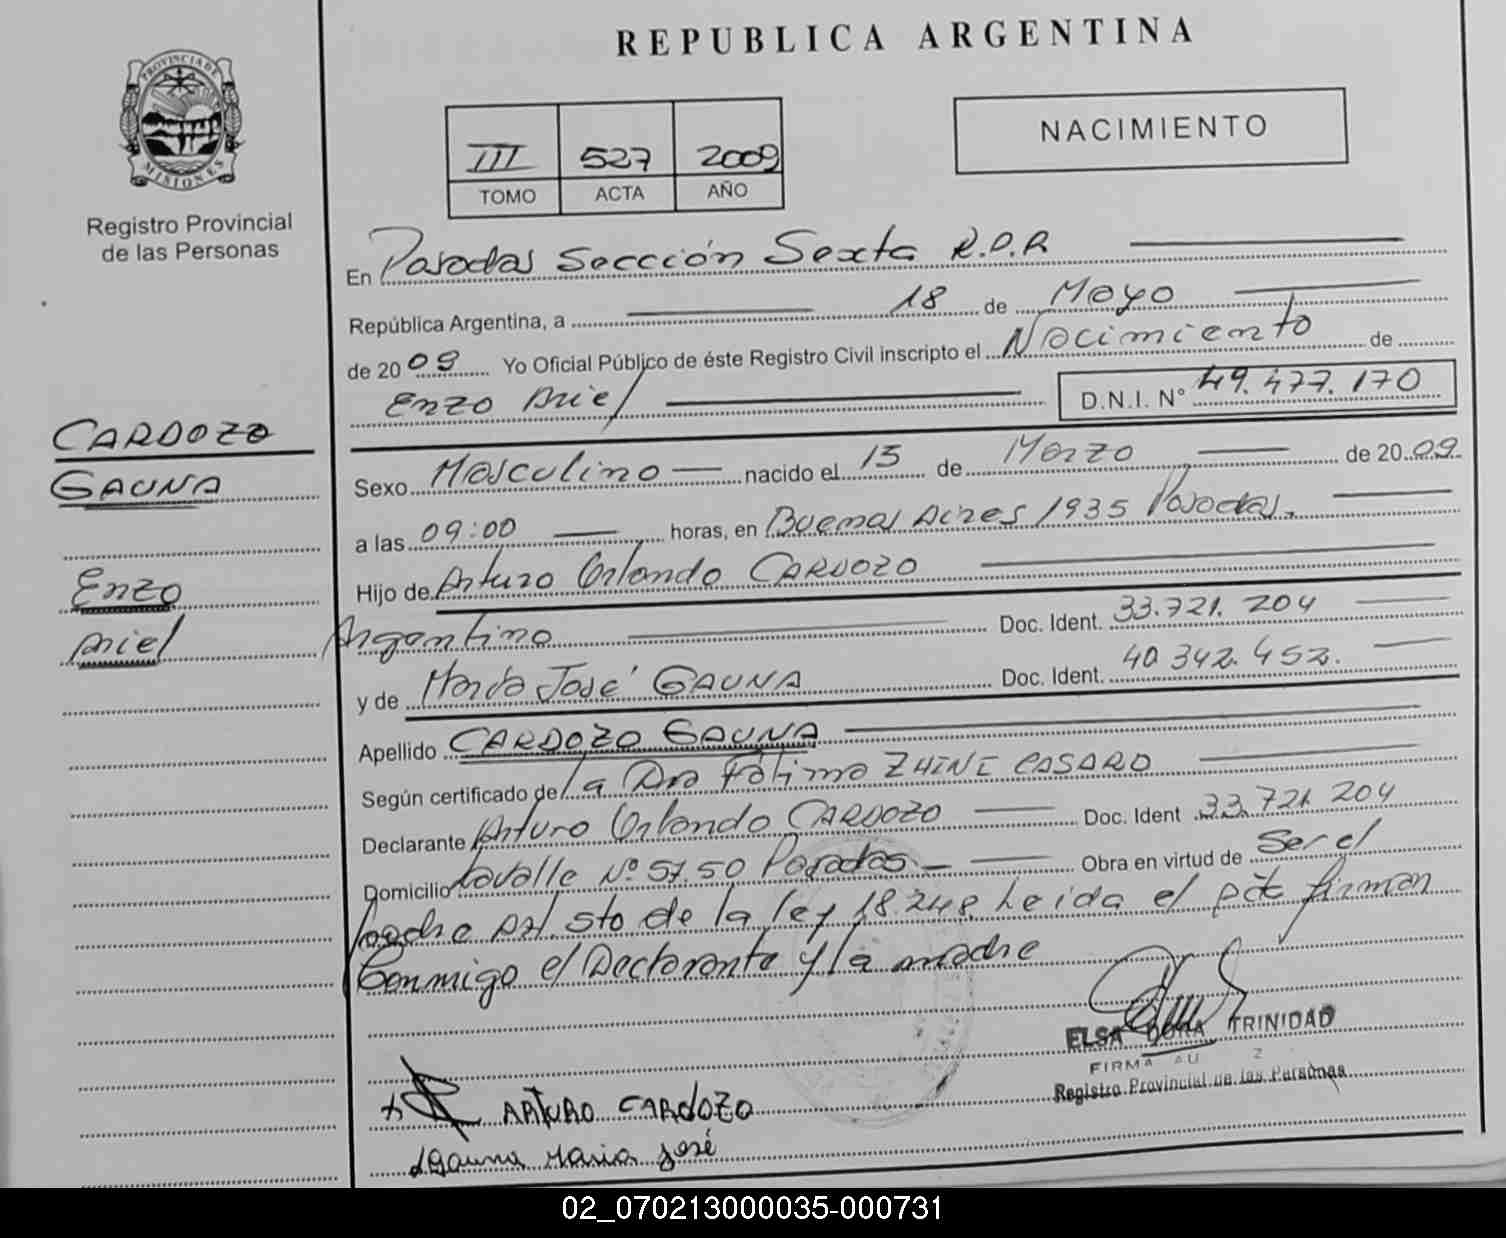 REPUBLICA ARGENTINA
PROVINCIA DE
MISIONES
Registro Provincial
de las Personas
III 527 2009
TOMO ACTA AÑO
NACIMIENTO
En Posadas Sección Sexta R.P.R
República Argentina, a 18 de Mayo
de 2009 Yo Oficial Público de éste Registro Civil inscripto el Nacimiento de
Enzo Ariel D.N.I. N° 49.477.170
CARDOZO
GAUNA
Enzo
Ariel
Sexo Masculino nacido el 15 de Marzo de 2009
a las 09:00 horas, en Buenos Aires 1935 Posadas.
Hijo de Arturo Orlando CARDOZO
Argentino Doc. Ident. 33.721.204
y de María José GAUNA Doc. Ident. 40 342.452.
Apellido CARDOZO GAUNA
Según certificado de la Dra Fátima CASARO
Declarante Arturo Orlando CARDOZO Doc. Ident 33.721.204
Domicilio Lavalle N° 5750 Posadas Obra en virtud de Ser el
Padre Art. 5to de la ley 18.248, Leida el pte firman
Conmigo el Declarante y la madre
ELSA DORA TRINIDAD
FIRMA AU
Registro Provincial de las Personas
ARTURO CARDOZO
Gauna Maria José
02_070213000035-000731